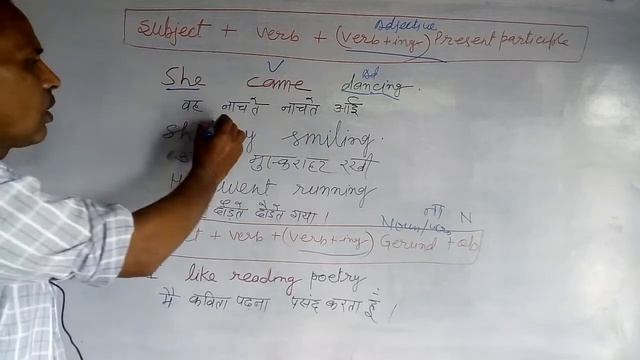 Adjective
Subject + verb + (verb+ing) Present participle
V
She came dancing.
वह नाचते नाचते आई
smiling.
मुस्कराहट रखी
went running
दौड़ते दौड़ते गया ।
ना N
Noun/verb
+ verb + (verb+ing) Gerund + ob
like reading poetry
मैं कविता पढना पसंद करता हूँ ।